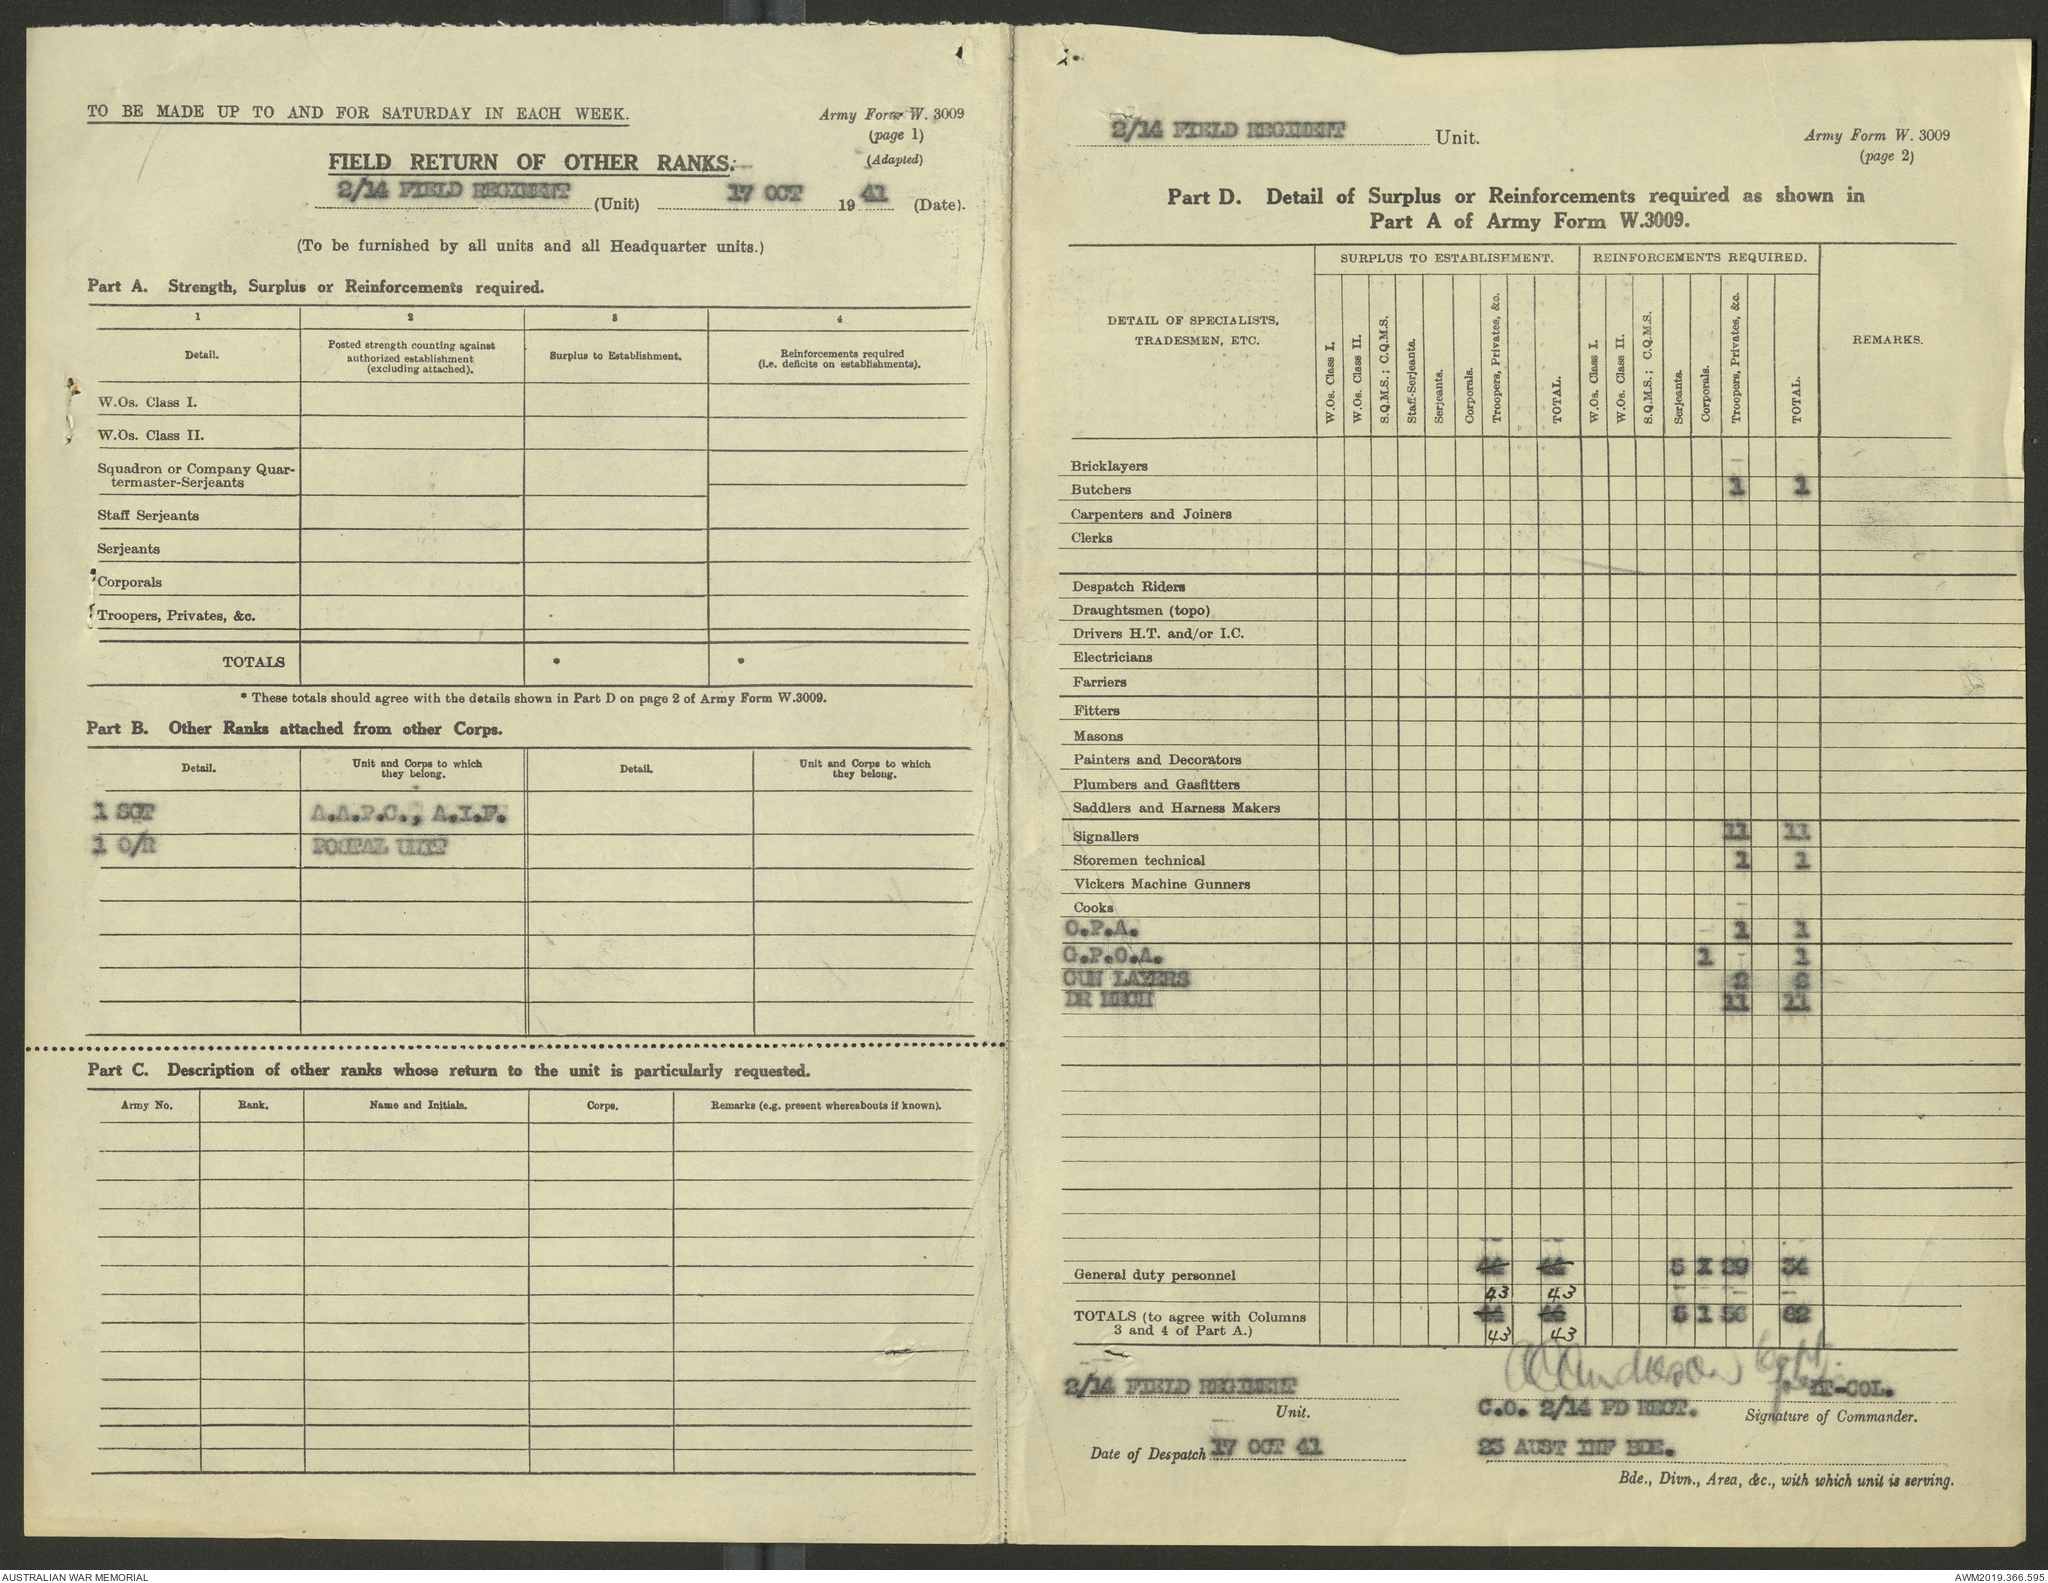 TO BE MADE UP TO AND FOR SATURDAY IN EACH WEEK.
Army Form W. 3009
(page 1)
(Adapted)
FIELD RETURN OF OTHER RANKS.
2/14 FIELD REGIMENT (Unit) 17 OCT 1941 (Date).
(To be furnished by all units and all Headquarter units.)
Part A. Strength, Surplus or Reinforcements required.
1 2 3 4
Detail. Posted strength counting against authorized establishment (excluding attached). Surplus to Establishment. Reinforcements required (i.e. deficits on establishments).
W.Os. Class I.
W.Os. Class II.
Squadron or Company Quar-
termaster-Serjeants
Staff Serjeants
Serjeants
Corporals
Troopers, Privates, &c.
TOTALS * *
* These totals should agree with the details shown in Part D on page 2 of Army Form W.3009.
Part B. Other Ranks attached from other Corps.
Detail. Unit and Corps to which they belong. Detail. Unit and Corps to which they belong.
1 SGT A.A.P.C., A.I.F.
1 O/R POSTAL UNIT
Part C. Description of other ranks whose return to the unit is particularly requested.
Army No. Rank. Name and Initials. Corps. Remarks (e.g. present whereabouts if known).
2/14 FIELD REGIMENT Unit.
Army Form W. 3009
(page 2)
Part D. Detail of Surplus or Reinforcements required as shown in
Part A of Army Form W.3009.
DETAIL OF SPECIALISTS, TRADESMEN, ETC.
SURPLUS TO ESTABLISHMENT. REINFORCEMENTS REQUIRED.
W.Os. Class I. W.Os. Class II. S.Q.M.S.; C.Q.M.S. Staff-Serjeants. Serjeants. Corporals. Troopers, Privates, &c. TOTAL. W.Os. Class I. W.Os. Class II. S.Q.M.S.; C.Q.M.S. Serjeants. Corporals. Troopers, Privates, &c. TOTAL.
REMARKS.
Bricklayers
Butchers 1 1
Carpenters and Joiners
Clerks
Despatch Riders
Draughtsmen (topo)
Drivers H.T. and/or I.C.
Electricians
Farriers
Fitters
Masons
Painters and Decorators
Plumbers and Gasfitters
Saddlers and Harness Makers
Signallers 11 11
Storemen technical 1 1
Vickers Machine Gunners
Cooks
O.P.A. 1 1
G.P.O.A. 1 - 1
GUN LAYERS 2 2
DR MECH 11 11
General duty personnel 44 44 5 X 29 34
43 43
TOTALS (to agree with Columns
3 and 4 of Part A.) 44 44 5 1 56 62
43 43
2/14 FIELD REGIMENT
Unit.
Date of Despatch 17 OCT 41
LT-COL.
C.O. 2/14 FD REGT. Signature of Commander.
23 AUST INF BDE.
Bde., Divn., Area, &c., with which unit is serving.
AUSTRALIAN WAR MEMORIAL
AWM2019.366.595